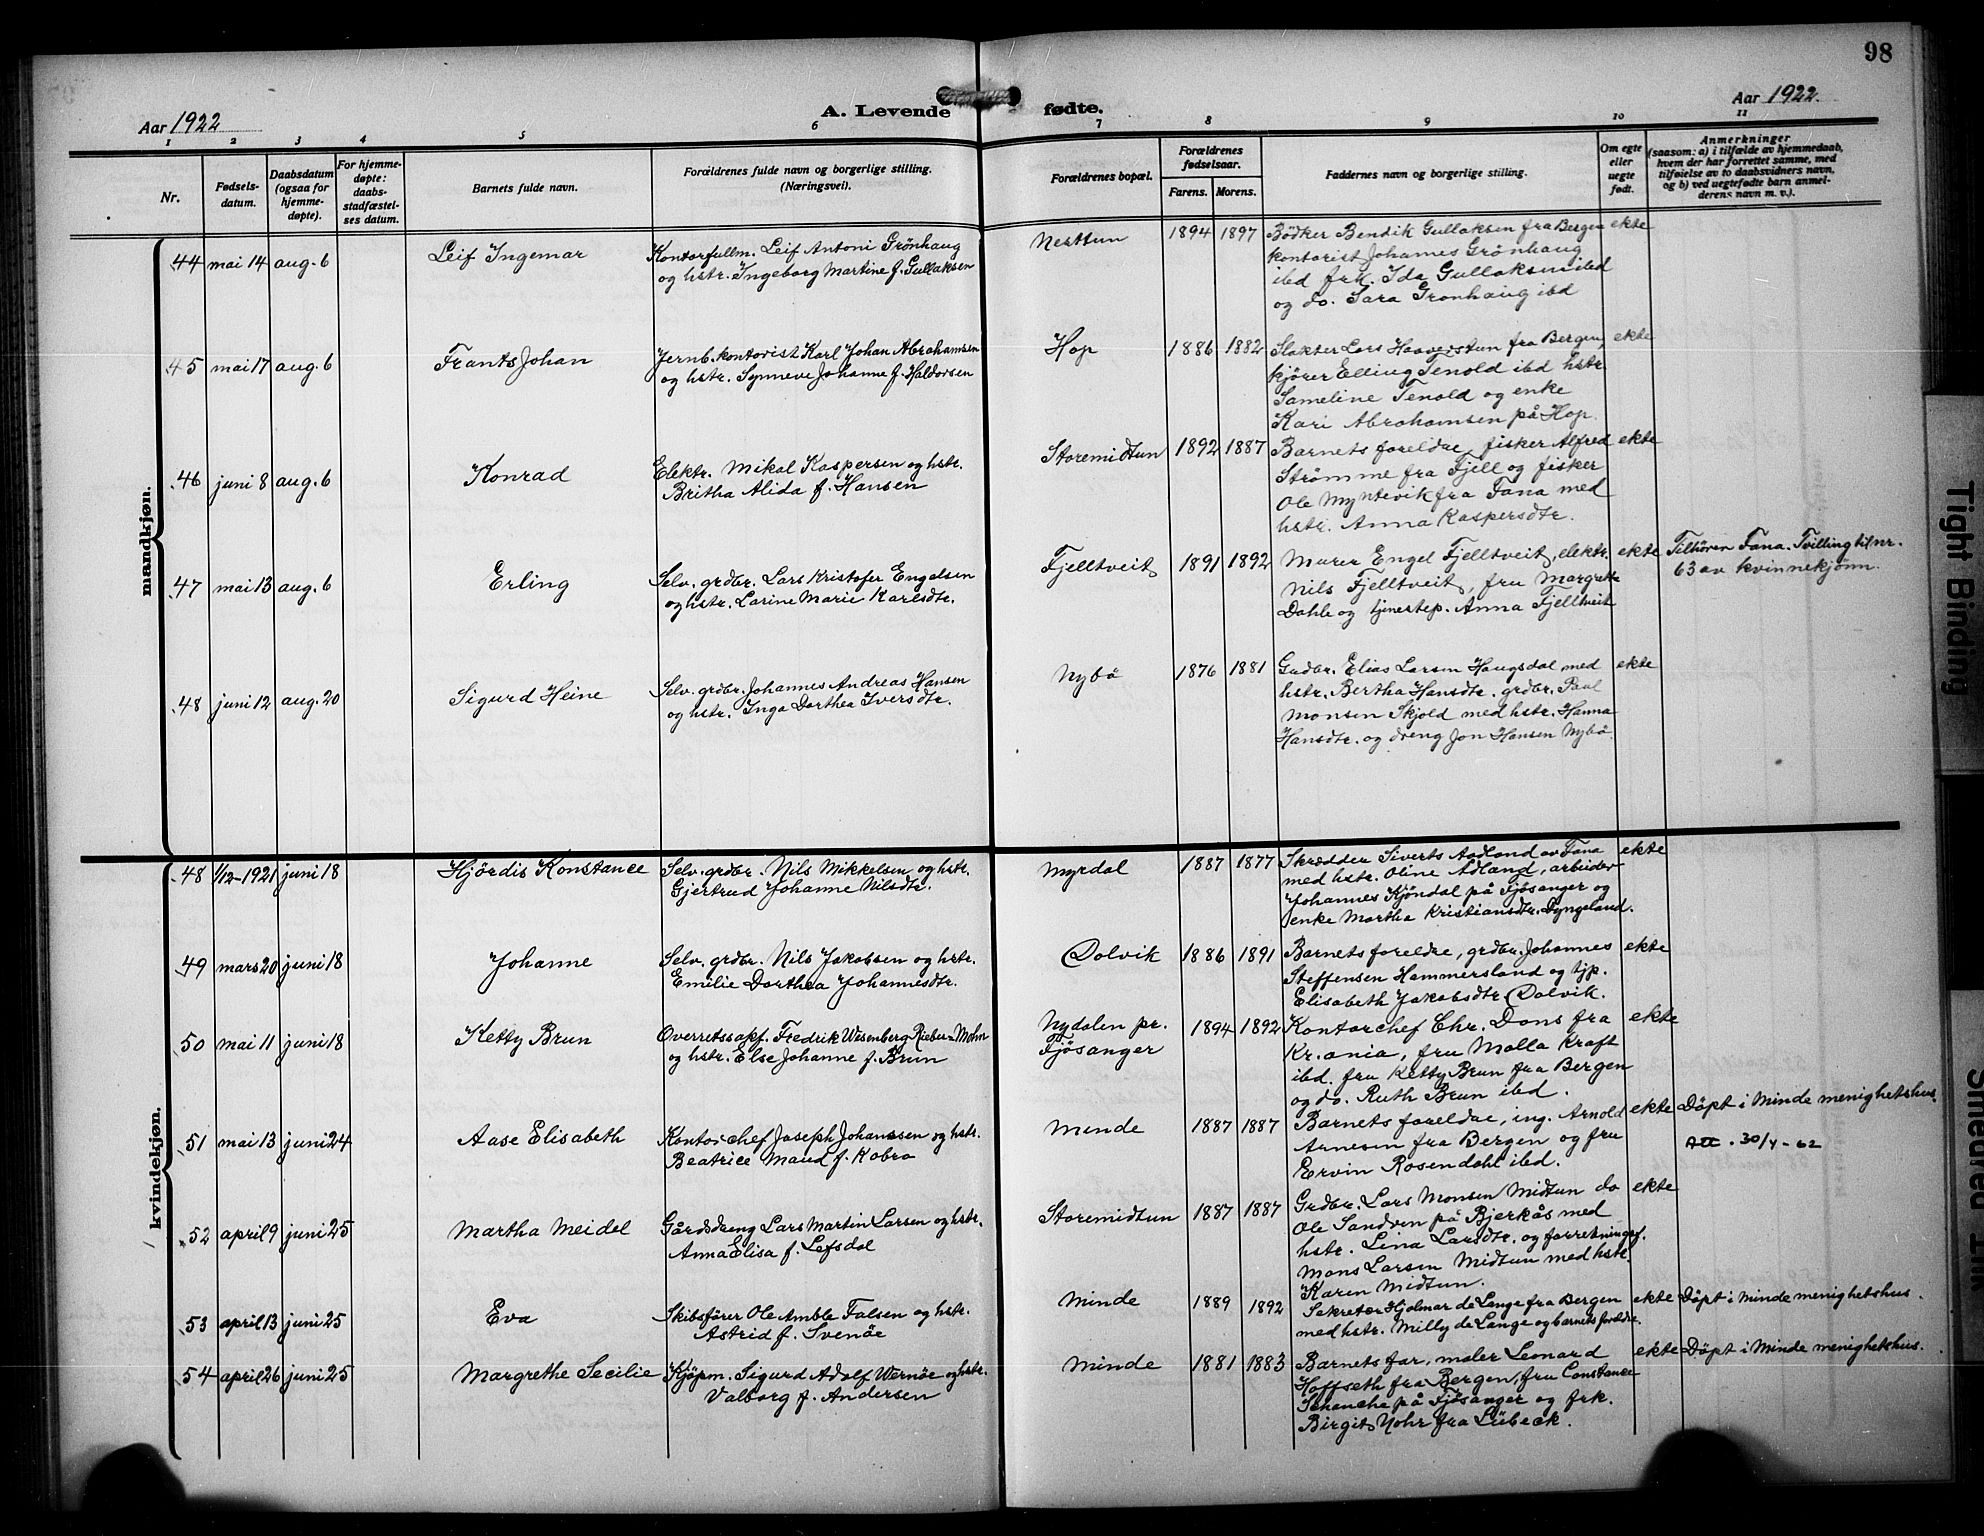 98
Aar 1922
A. Levende fødte.
Aar 1922.
1 2 3 4 5 6 7 8 9 10 11
Nr.
Fødsels-
datum.
Daabsdatum
(ogsaa for
hjemme-
døpte).
For hjemme-
døpte:
daabs-
stadfæstel-
ses datum.
Barnets fulde navn.
Forældrenes fulde navn og borgerlige stilling.
(Næringsvei).
Forældrenes bopæl.
Forældrenes
fødselsaar.
Farens. Morens.
Faddernes navn og borgerlige stilling.
Om egte
eller
uegte
født.
Anmerkninger
(saasom: a) i tilfælde av hjemmedaab,
hvem der har forrettet samme, med
tilføielse av to daabsvidners navn,
og b) ved uegtefødte barn anmel-
derens navn m. v.).
mandkjøn.
44 mai 14 aug. 6 Leif Ingemar
Kontorfullm. Leif Antoni Grönhaug
og hstr. Ingeborg Martine f. Gullaksen
Nesttun 1894 1897
Bödker Bendik Gullaksen fra Bergen
kontorist Johannes Grönhaug
ibd frk. Ida Gullaksen ibd
og do. Sara Grönhaug ibd
ekte
45 mai 17 aug. 6 Frants Johan
Jernb. kontorist Karl Johan Abrahamsen
og hstr. Synneve Johanne f. Haldorsen
Hop 1886 1882
Slakter Lars Haaverstun fra Bergen
kjörer Elling Tenold ibd hstr.
Sameline Tenold og enke
Kari Abrahamsen på Hop.
ekte
46 juni 8 aug. 6 Konrad
Elektr. Mikal Kaspersen og hstr.
Britha Alida f. Hansen
Storemidtun 1892 1887
Barnets foreldre, fisker Alfred
Strømme fra Fjell og fisker
Ole Myntevik fra Fana med
hstr. Anna Kaspersdtr.
ekte
47 mai 13 aug. 6 Erling
Selv. grdbr. Lars Kristofer Engelsen
og hstr. Larine Marie Karlsdtr.
Fjelltveit 1891 1892
Murer Engel Fjelltveit, elektr.
Nils Fjelltveit, fru Margrethe
Dahle og tjenestep. Anna Fjelltveit
ekte
Tilhörer Fana. Tvilling til nr.
63 av kvinnekjönn.
48 juni 12 aug. 20 Sigurd Heine
Selv. grdbr. Johannes Andreas Hansen
og hstr. Inga Dorthea Iversdtr.
Nybö 1876 1881
Gudbr. Elias Larsen Haugsdal med
hstr. Bertha Hansdtr. grdbr. Paul
Monsen Skjold med hstr. Hanna
Hansdtr. og dreng Jon Hansen Nybö.
ekte
kvindekjøn.
48 1/12-1921 juni 18 Hjördis Konstance
Selv. grdbr. Nils Mikkelsen og hstr.
Gjertrud Johanne Nilsdtr.
Myrdal 1887 1877
Skrædder Siverts Aadland av Fana
med hstr. Oline Adland, arbeider
Johannes Kjöndal på Fjösanger og
enke Martha Kristiansdtr. Tyngeland.
ekte
49 mars 20 juni 18 Johanne
Selv. grdbr. Nils Jakobsen og hstr.
Emilie Dorthea Johannesdtr.
Dolvik 1886 1891
Barnets foreldre, grdbr. Johannes
Steffensen Hammersland og tjp.
Elisabeth Jakobsdtr Dolvik.
ekte
50 mai 11 juni 18 Ketty Brun
Overretssakf. Fredrik Wesenberg Rieber-Mohn
og hstr. Else Johanne f. Brun
Nydalen pr.
Fjösanger
1894 1892
Kontorchef Chr. Dons fra
Kr.ania, fru Malla Kraft
ibd. fru Ketty Brun fra Bergen
og do. Ruth Brun ibd.
ekte
51 mai 13 juni 24 Aase Elisabeth
Kontorchef Joseph Johanssen og hstr.
Beatrice Maud f. Kobro
Minde 1887 1887
Barnets foreldre, ing. Arnold
Arnesen fra Bergen og fru
Ervin Rosendahl ibd.
ekte
Döpt i Minde menighetshus.
Att. 30/4-62
52 april 9 juni 25 Martha Meidel
Gårdsdreng Lars Martin Larsen og hstr.
Anna Elisa f. Lefsdal
Storemidtun 1887 1887
Grdbr. Lars Monsen Midtun do
Ole Sandven på Bjerkås med
hstr. Lina Larsdtr. og forretningsf.
Mons Larsen Midtun med hstr.
Karen Midtun.
ekte
53 april 13 juni 25 Eva
Skibsförer Ole Amble Falsen og hstr.
Astrid f. Svenöe
Minde 1889 1892
Sekretær Hjalmar de Lange fra Bergen
med hstr. Milly de Lange og barnets foreldre.
ekte
Döpt i Minde menighetshus.
54 april 26 juni 25 Margrethe Secilie
Kjöpm. Sigurd Adolf Wernöe og hstr.
Valborg f. Andersen
Minde 1881 1883
Barnets far, maler Leonard
Hoffseth fra Bergen, fru Constance
Schanche på Fjösanger og frk.
Birgit Nohr fra Lübeck.
ekte
Döpt i Minde menighetshus.
Tight Binding
Smeared Ink